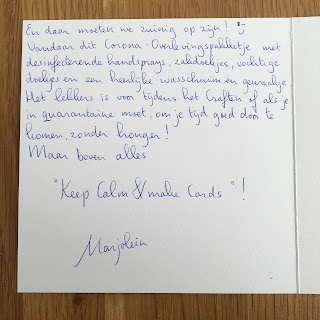 En daar moeten we zuinig op zijn! :-)
Vandaar dit Corona-Overlevingspakketje met
desinfecterende handsprays, zakdoekjes, vochtige
doekjes en een heerlijke wasschuim en geurzakje
Het lekkers is voor tijdens het Craften of als je
in quarantaine moet, om je tijd goed door te
komen, zonder honger!
Maar boven alles
"Keep Calm & make Cards"!
Marjolein